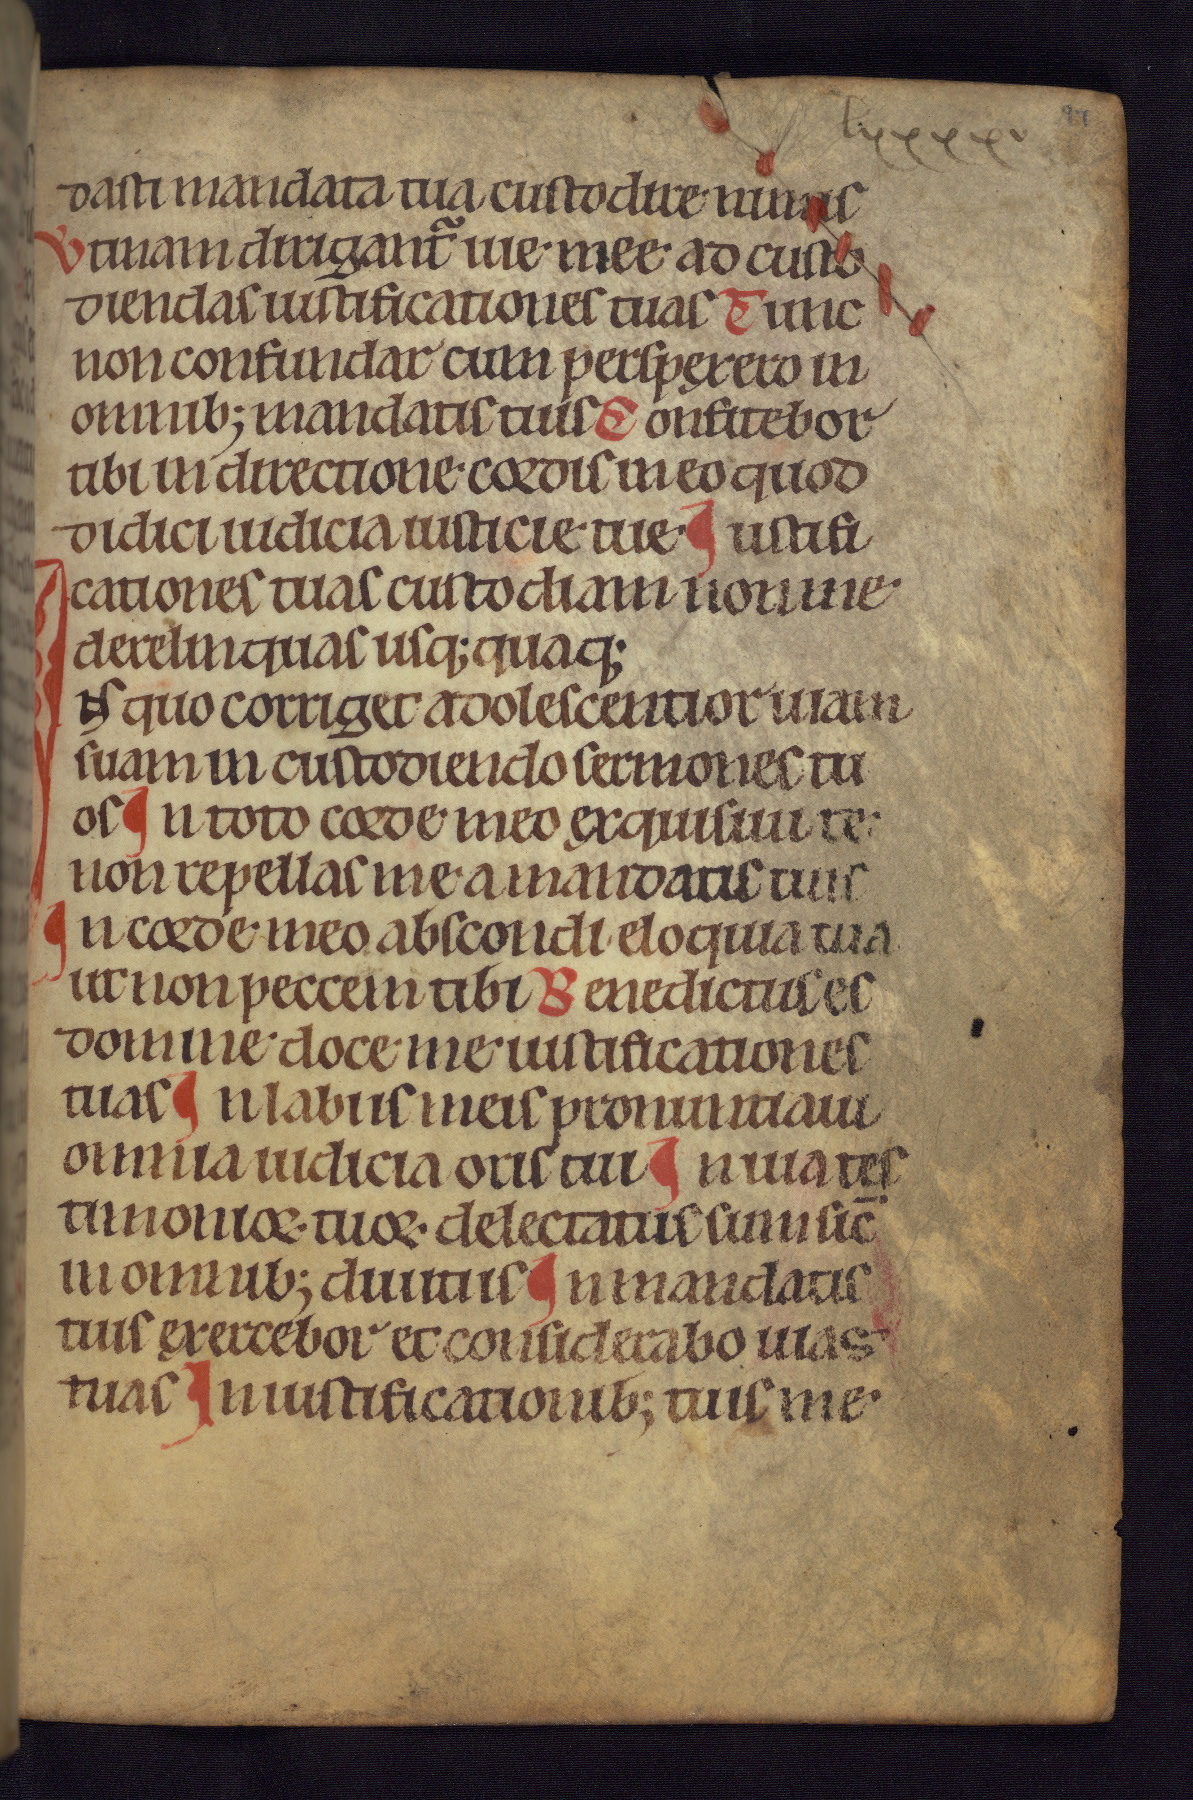 lxxxxv 97
dasti mandata tua custodire nimis
Utinam dirigant̃ uie mee ad custo
diendas iustificationes tuas Tunc
non confundar cum perspexero in
omnib; mandatis tuis Confitebor
tibi in directione cordis meo quod
didici iudicia iusticie tue Iustifi
cationes tuas custodiam non me
derelinquas usq; quaq;
IN quo corriget adolescentior uiam
suam in custodiendo sermones tu
os In toto corde meo exquisiui te
non repellas me a mandatis tuis
In corde meo abscondi eloquia tua
ut non peccem tibi Benedictus es
domine doce me iustificationes
tuas In labiis meis pronuntiaui
omnia iudicia oris tui In uia tes
timonior tuor delectatus sum sic̄
in omnib; diuitiis In mandatis
tuis exercebor et considerabo uias
tuas In iustificationib; tuis me